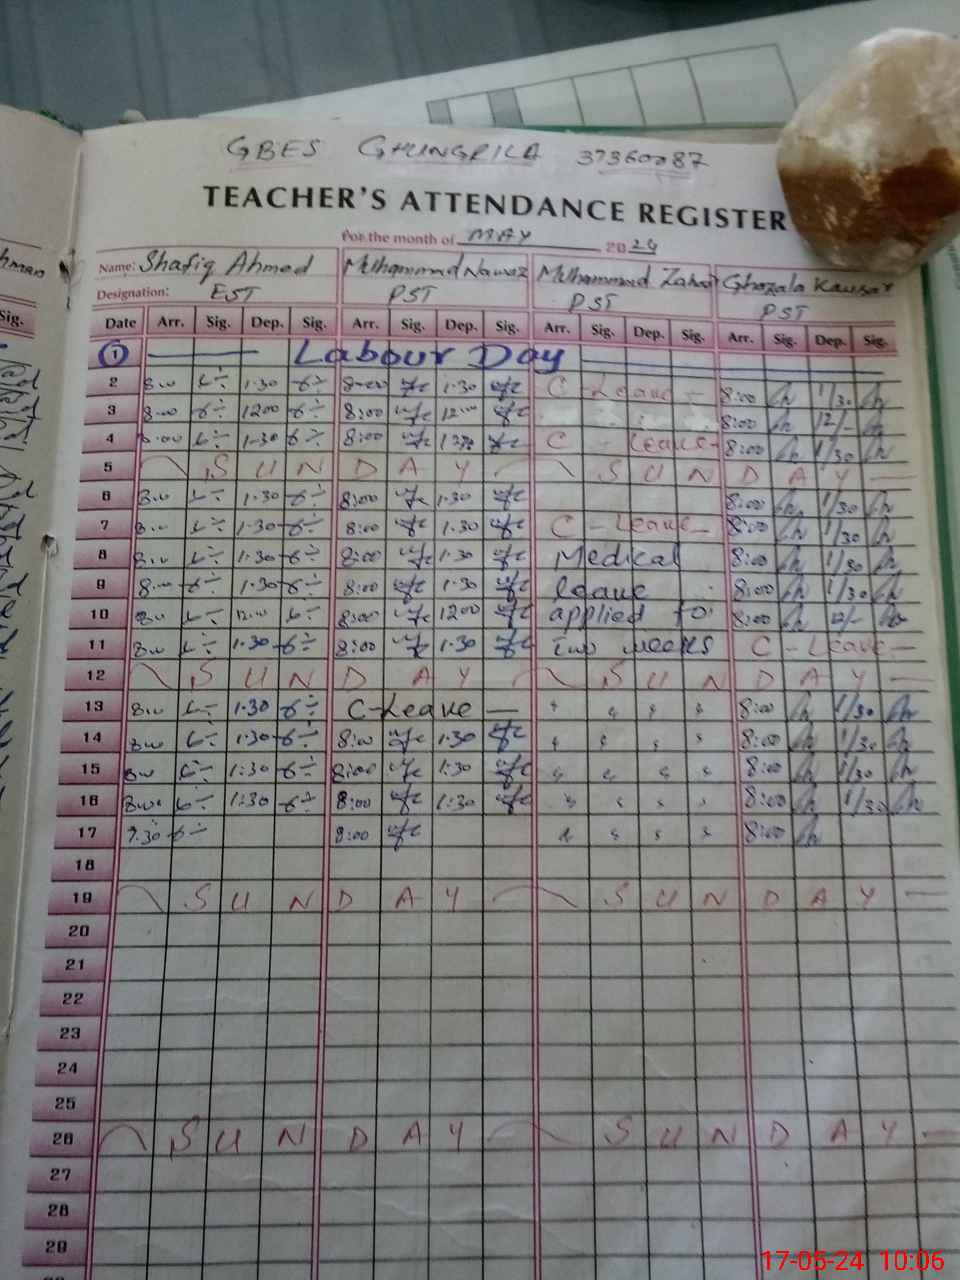 GBES GHUNGRILA 37360087
TEACHER'S ATTENDANCE REGISTER
For the month of MAY 2024
Name: Shafiq Ahmed Muhammad Nawaz Muhammad Ghazala Kausar
Designation: EST PST PST PST
Date Arr. Sig. Dep. Sig. Arr. Sig. Dep. Sig. Arr. Sig. Dep. Sig. Arr. Sig. Dep. Sig.
1 Labour Day
2 8:00 1:30 8:00 1:30 C - Leave - 8:00 1/30
3 8:00 1200 8:00 12:00 8:00 12/-
4 8:00 1:30 8:00 C - Leave - 8:00 1/30
5 S U N D A Y S U N D A Y
6 8:00 1:30 8:00 1:30 8:00 1/30
7 8:00 1:30 8:00 1:30 C - Leave - 8:00 1/30
8 8:00 1:30 8:00 1:30 Medical 8:00 1/30
9 8:00 1:30 8:00 1:30 leave 8:00 1/30
10 8:00 12:00 8:00 1200 applied for 8:00 12/-
11 8:00 1:30 8:00 1:30 two weeks C - Leave -
12 S U N D A Y S U N D A Y
13 8:00 1:30 C-Leave - 8:00 1/30
14 8:00 1:30 8:00 1:30 8:00 1/30
15 8:00 1:30 8:00 1:30 8:00 1/30
16 8:00 1:30 8:00 1:30 8:00 1/30
17 7:30 8:00 8:00
18
19 S U N D A Y S U N D A Y
20
21
22
23
24
25
26 S U N D A Y S U N D A Y
27
28
29
17-05-24 10:06